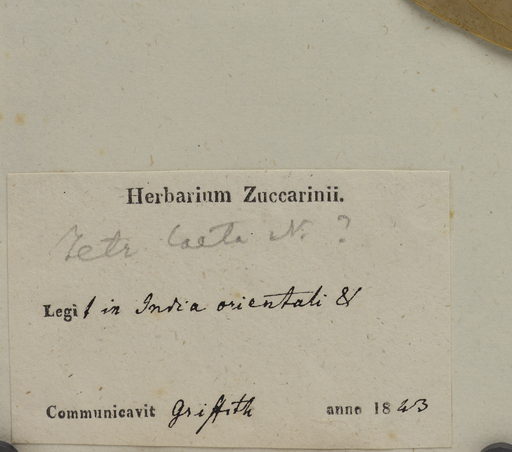 Herbarium Zuccarinii.
Tetr laeta N. ?
Legit in India orientali &
Communicavit Griffith anno 1843